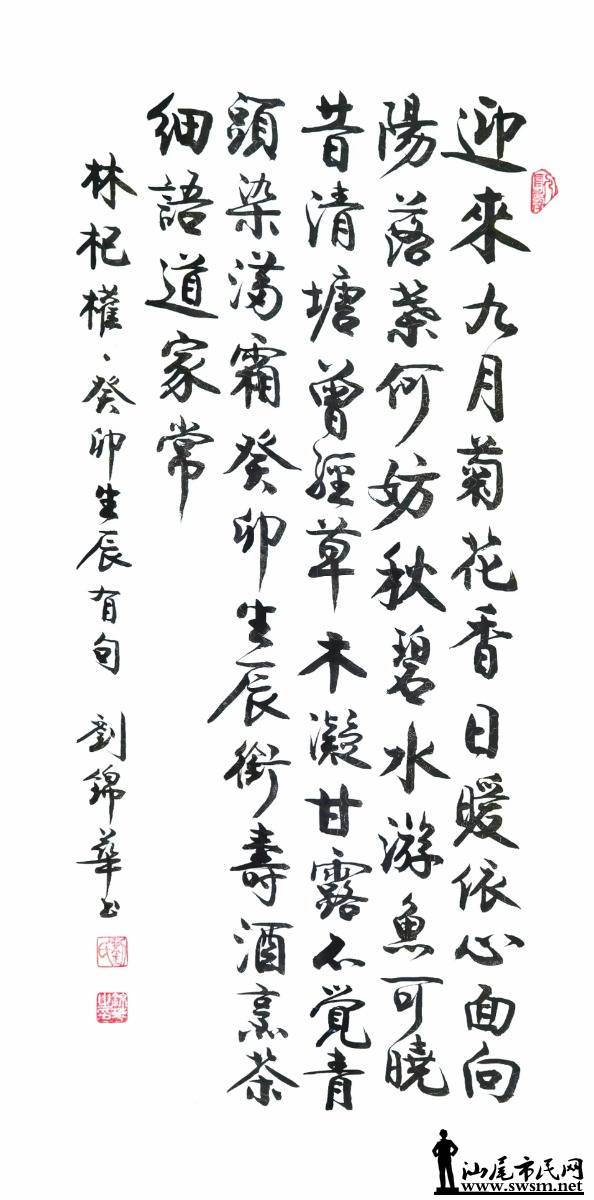 迎來九月菊花香日暖依心面向
陽落葉何妨秋碧水游魚可曉
昔清塘曾經草木凝甘露不覺青
頭染滿霜癸卯生辰銜壽酒烹茶
細語道家常
林杞權、癸卯生辰有句 劉錦華书
汕尾市民网
www.swsm.net